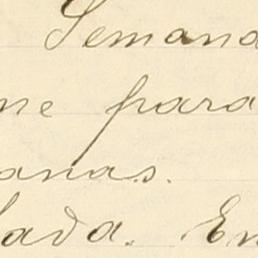 Semana
ne para
anas.
lada. En